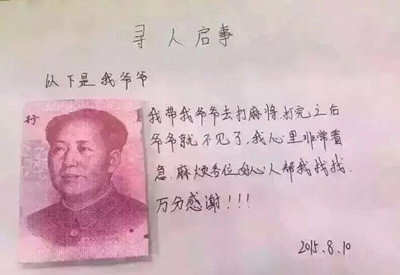 寻人启事
以下是我爷爷
村
我带我爷爷去打麻将.打完之后
爷爷就不见了,我心里非常着
急.麻烦各位好心人帮我找找.
万分感谢!!!
2015.8.10